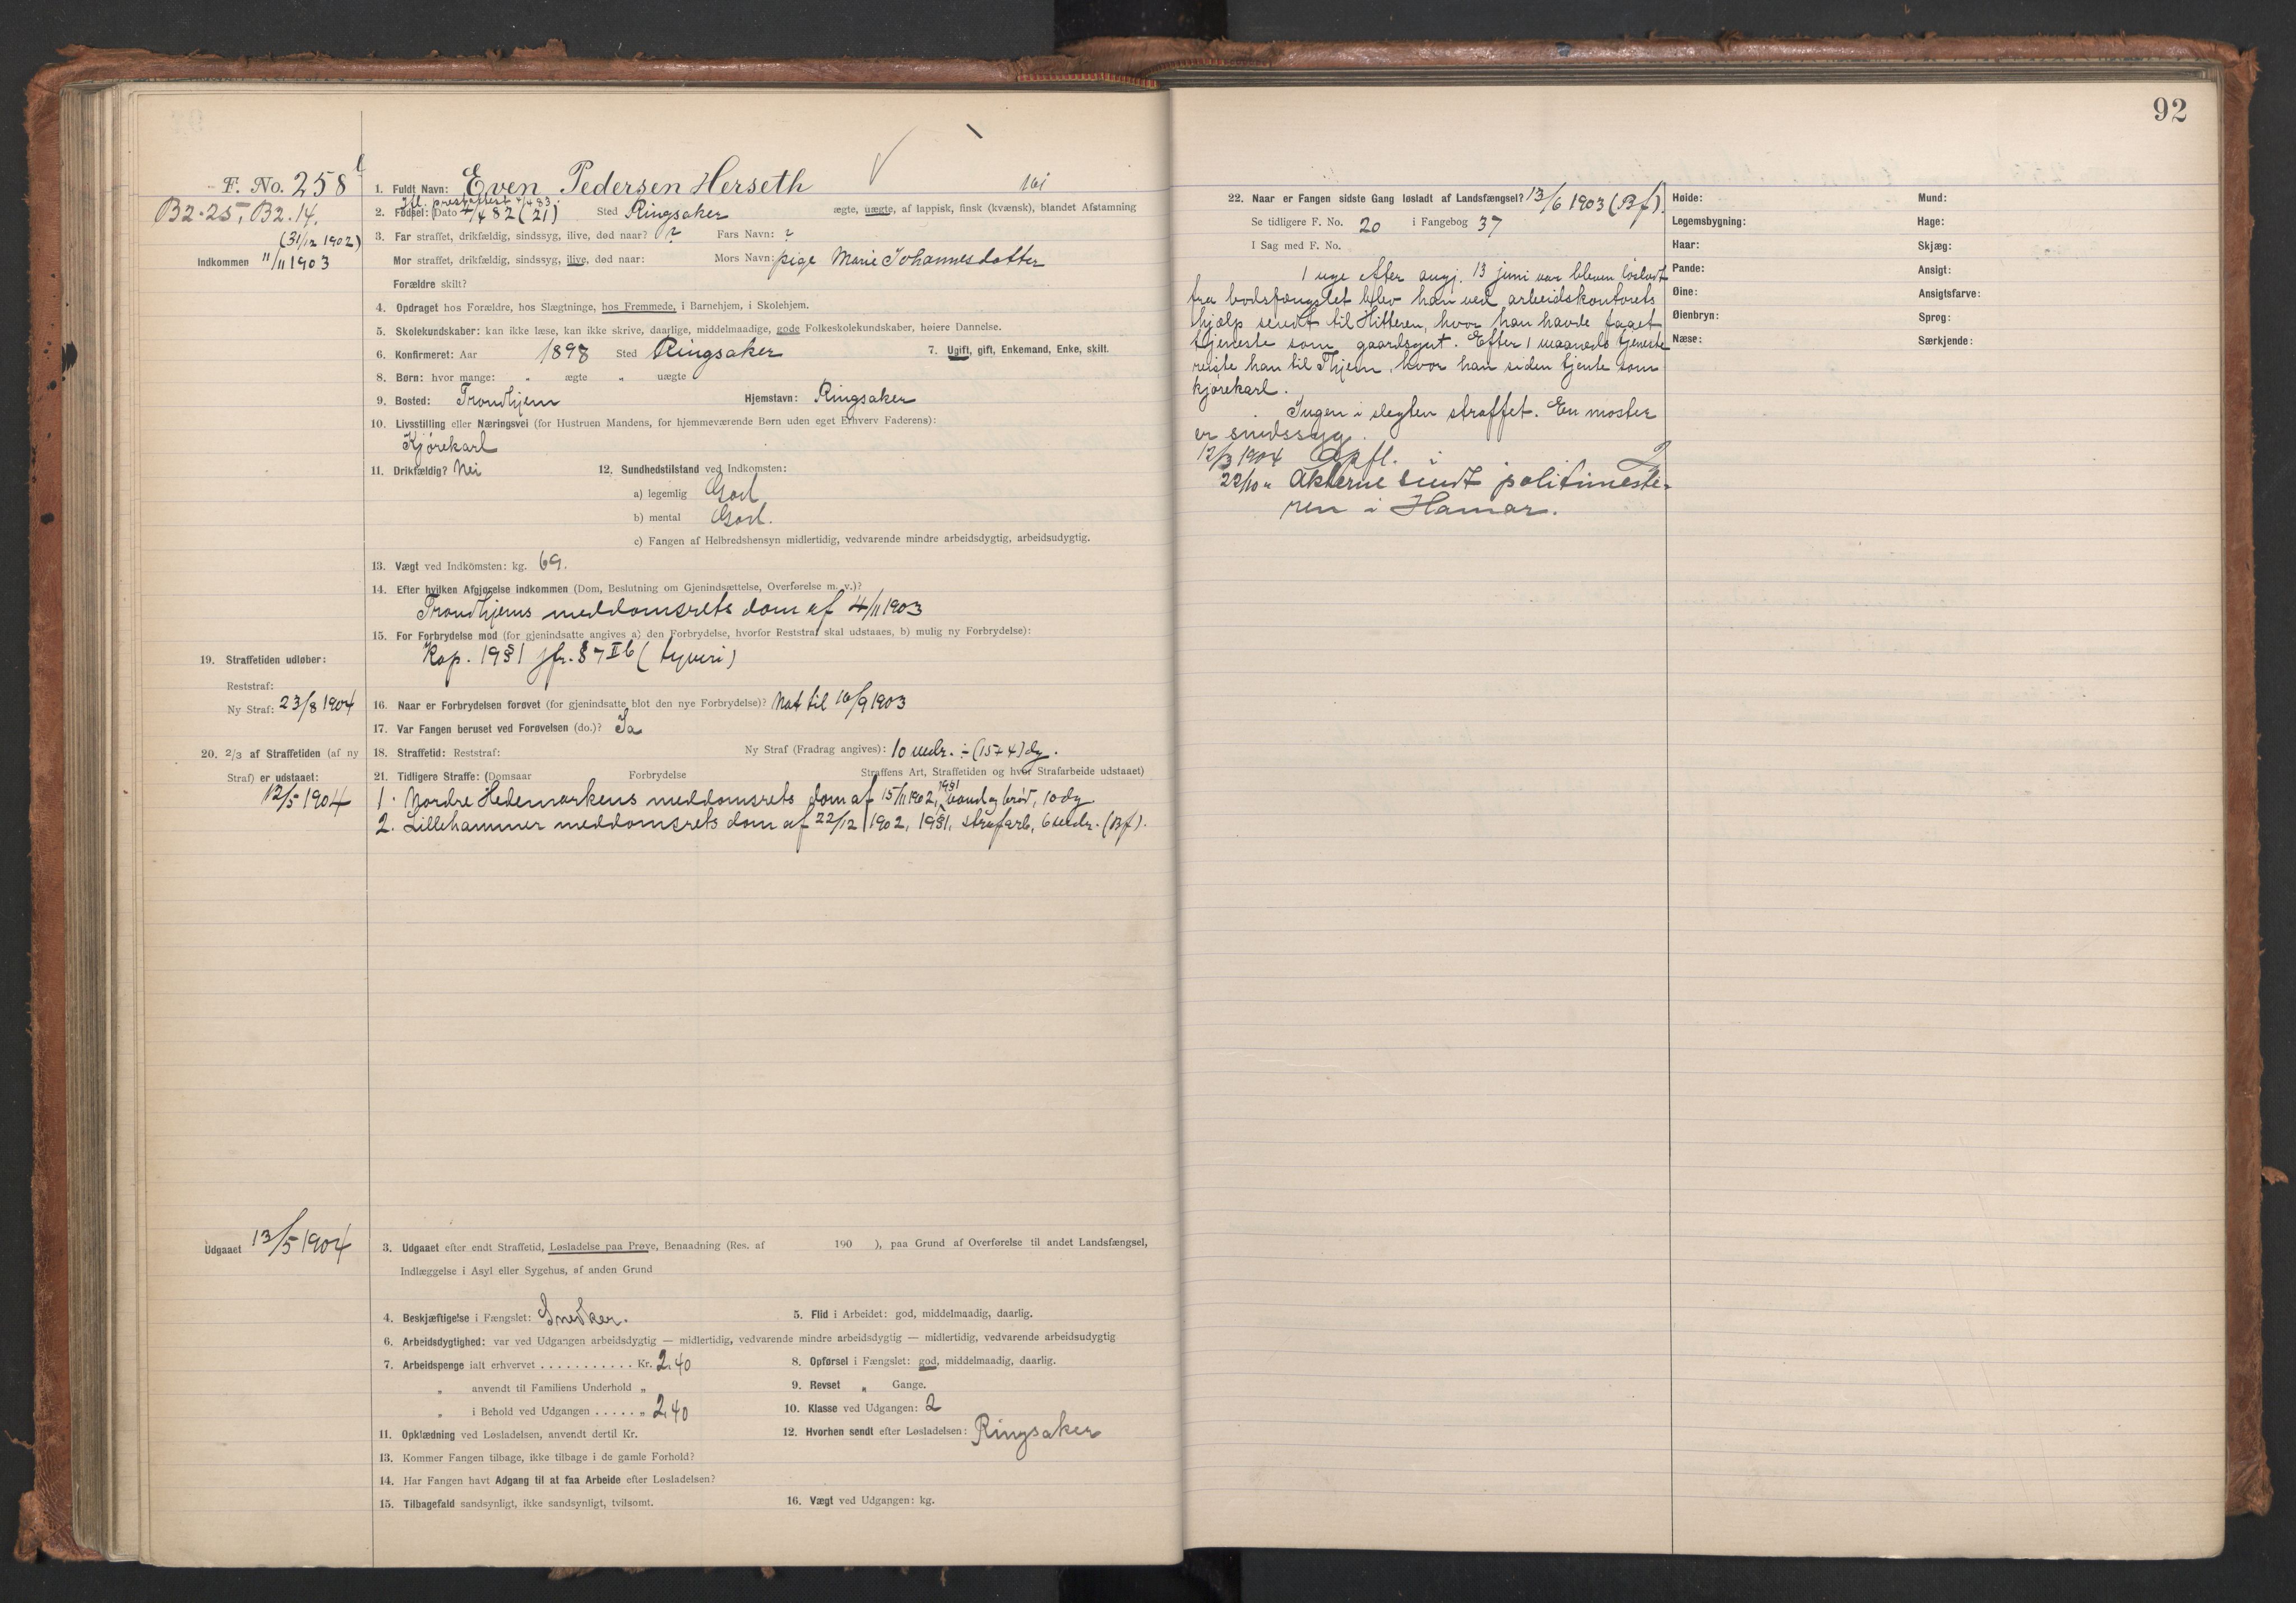 92
F. No. 258
B2.25, B2.14.
(31/12 1902)
Indkommen 11/11 1903
1. Fuldt Navn: Even Pedersen Herseth
161
Ifl. presteattest 4/4 83.
2. Fødsel: Dato 4/4 82 (21) Sted Ringsaker ægte, uægte, af lappisk, finsk (kvænsk), blandet Afstamning
3. Far straffet, drikfældig, sindssyg, ilive, død naar? ? Fars Navn: ?
Mor straffet, drikfældig, sindssyg, ilive, død naar: Mors Navn: pige Marie Johannesdatter
Forældre skilt?
4. Opdraget hos Forældre, hos Slægtninge, hos Fremmede, i Barnehjem, i Skolehjem.
5. Skolekundskaber: kan ikke læse, kan ikke skrive, daarlige, middelmaadige, gode Folkeskolekundskaber, høiere Dannelse.
6. Konfirmeret: Aar 1898 Sted Ringsaker 7. Ugift, gift, Enkemand, Enke, skilt.
8. Børn: hvor mange: „ ægte „ uægte
9. Bosted: Trondhjem Hjemstavn: Ringsaker
10. Livsstilling eller Næringsvei (for Hustruen Mandens, for hjemmeværende Børn uden eget Erhverv Faderens):
Kjørekarl
11. Drikfældig? Nei 12. Sundhedstilstand ved Indkomsten:
a) legemlig God
b) mental God.
c) Fangen af Helbredshensyn midlertidig, vedvarende mindre arbeidsdygtig, arbeidsudygtig.
13. Vægt ved Indkomsten: kg. 69.
14. Efter hvilken Afgjørelse indkommen (Dom, Beslutning om Gjenindsættelse, Overførelse m. v.)?
Trondhjems meddomsrets dom af 4/11 1903
15. For Forbrydelse mod (for gjenindsatte angives a) den Forbrydelse, hvorfor Reststraf skal udstaaes, b) mulig ny Forbrydelse):
Kap. 19 § 1 jfr. § 7 II b (tyveri)
19. Straffetiden udløber:
Reststraf:
Ny Straf: 23/8 1904
16. Naar er Forbrydelsen forøvet (for gjenindsatte blot den nye Forbrydelse)? Nat til 16/9 1903
17. Var Fangen beruset ved Forøvelsen (do.)? Ja
20. 2/3 af Straffetiden (af ny
Straf) er udstaaet:
12/5 1904
18. Straffetid: Reststraf: Ny Straf (Fradrag angives): 10 mdr. ÷ (15+4) dg.
21. Tidligere Straffe: (Domsaar Forbrydelse Straffens Art, Straffetiden og hvor Strafarbeide udstaaet)
1. Nordre Hedemarkens meddomsrets dom af 15/11 1902, 19§1 vand og brød, 10 dg.
2. Lillehammer meddomsrets dom af 22/12 1902, 19§1, strafarb, 6 mdr. (Bf).
Udgaaet 13/5 1904
3. Udgaaet efter endt Straffetid, Løsladelse paa Prøve, Benaadning (Res. af 190 ), paa Grund af Overførelse til andet Landsfængsel,
Indlæggelse i Asyl eller Sygehus, af anden Grund
4. Beskjæftigelse i Fængslet: Snedker. 5. Flid i Arbeidet: god, middelmaadig, daarlig.
6. Arbeidsdygtighed: var ved Udgangen arbeidsdygtig — midlertidig, vedvarende mindre arbeidsdygtig — midlertidig, vedvarende arbeidsudygtig
7. Arbeidspenge ialt erhvervet ........... Kr. 2.40 8. Opførsel i Fængslet: god, middelmaadig, daarlig.
„ anvendt til Familiens Underhold „ 9. Revset „ Gange.
„ i Behold ved Udgangen ..... „ 2.40 10. Klasse ved Udgangen: 2
11. Opklædning ved Løsladelsen, anvendt dertil Kr. 12. Hvorhen sendt efter Løsladelsen: Ringsaker
13. Kommer Fangen tilbage, ikke tilbage i de gamle Forhold?
14. Har Fangen havt Adgang til at faa Arbeide efter Løsladelsen?
15. Tilbagefald sandsynligt, ikke sandsynligt, tvilsomt. 16. Vægt ved Udgangen: kg.
22. Naar er Fangen sidste Gang løsladt af Landsfængsel? 13/6 1903 (Bf).
Se tidligere F. No. 20 i Fangebog 37
I Sag med F. No.
1 uge efter angj. 13 juni var bleven løsladt
fra bodsfængslet blev han ved arbeidskontorets
hjælp sendt til Hitteren, hvor han havde faaet
tjeneste som gaardsgut. Efter 1 maaneds tjeneste
reiste han til Thjem, hvor han siden tjente som
kjørekarl.
Ingen i slegten straffet. En moster
er sindssyg.
12/3 1904 Opfl.
22/10 „ Akterne sendt politimeste-
ren i Hamar.
Høide: Mund:
Legemsbygning: Hage:
Haar: Skjæg:
Pande: Ansigt:
Øine: Ansigtsfarve:
Øienbryn: Sprog:
Næse: Særkjende: